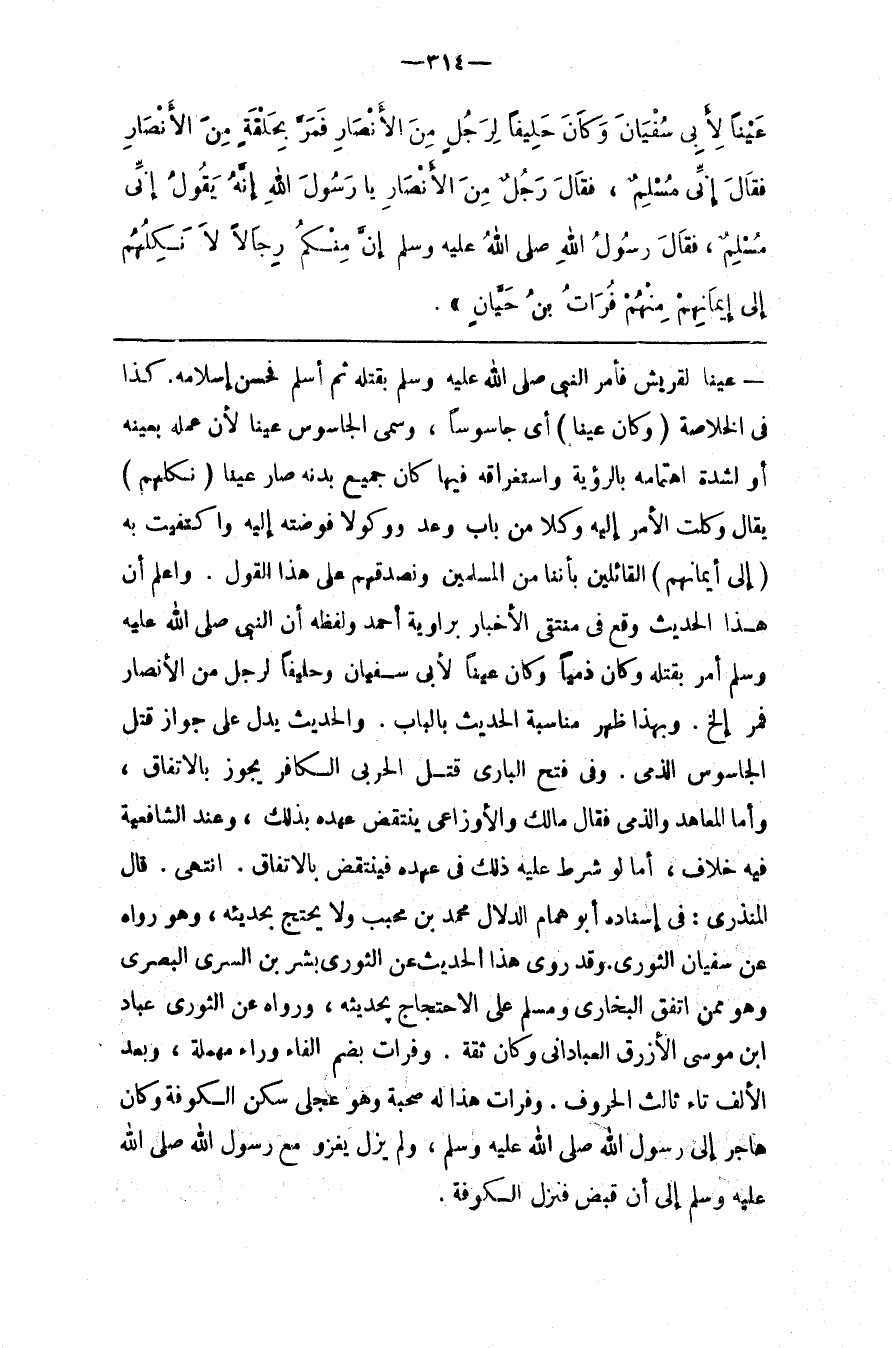 —٣١٤—
عَيْناً لِأَبِى سُفْيَانَ وَكَانَ حَلِيفاً لِرَجُلٍ مِنَ الأَنْصَارِ فَمَرَّ بِحَلْقَةٍ مِنَ الأَنْصَارِ
فقَالَ إِنِّى مُسْلِمٌ ، فقَالَ رَجُلٌ مِنَ الأَنْصَارِ يا رَسُولَ اللهِ إِنَّهُ يَقُولُ إِنِّى
مُسْلِمٌ ، فقَالَ رسُولُ اللهِ صلى اللهُ عليه وسلم إِنَّ مِنْـكُمْ رِجَالاً لاَ نَـكِلُهُمْ
إلى إِيمَانِهِمْ مِنْهُمْ فُرَاتُ بنُ حَيَّانٍ » .
— عينا لقريش فأمر النبى صلى الله عليه وسلم بقتله ثم أسلم فحسن إسلامه . كـذا
فى الخلاصة ( وكان عينا ) أى جاسوساً ، وسمى الجاسوس عينا لأن عمله بعينه
أو لشدة اهتمامه بالرؤية واستغراقه فيها كان جميـع بدنه صار عينا ( نـكلهم )
يقال وكلت الأمر إليه وكلا من باب وعد ووكولا فوضته إليه واكتفيت به
( إلى أيمانهم ) القائلين بأننا من المسلمين ونصدقهم على هذا القول . واعلم أن
هـذا الحديث وقع فى منتقى الأخبار براوية أحمد ولفظه أن النبى صلى الله عليه
وسلم أمر بقتله وكان ذمياً وكان عيناً لأبى سـفيان وحليفاً لرجل من الأنصار
فمر إلخ . وبهذا ظهر مناسبة الحديث بالباب . والحديث يدل على جواز قتل
الجاسوس الذمى . وفى فتح البارى قتـل الحربى الـكافر يجوز بالاتفاق ،
وأما المعاهد والذمى فقال مالك والأوزاعى ينتقض عهده بذلك ، وعند الشافعية
فيه خلاف ، أما لو شرط عليه ذلك فى عهده فينتقض بالاتفاق . انتهى . قال
المنذرى : فى إسناده أبو همام الدلال محمد بن محبب ولا يحتج بحديثه ، وهو رواه
عن سفيان الثورى.وقد روى هذا الحديث عن الثورى بشر بن السرى البصرى
وهو ممن اتفق البخارى ومسلم على الاحتجاج بحديثه ، ورواه عن الثورى عباد
ابن موسى الأزرق العبادانى وكان ثقة . وفرات بضم الفاء وراء مهملة ، وبعد
الألف تاء ثالث الحروف . وفرات هذا له صحبة وهو عجلى سكن الـكوفة وكان
هاجر إلى رسول الله صلى الله عليه وسلم ، ولم يزل يغزو مع رسول الله صلى الله
عليه وسلم إلى أن قبض فنزل الـكوفة .